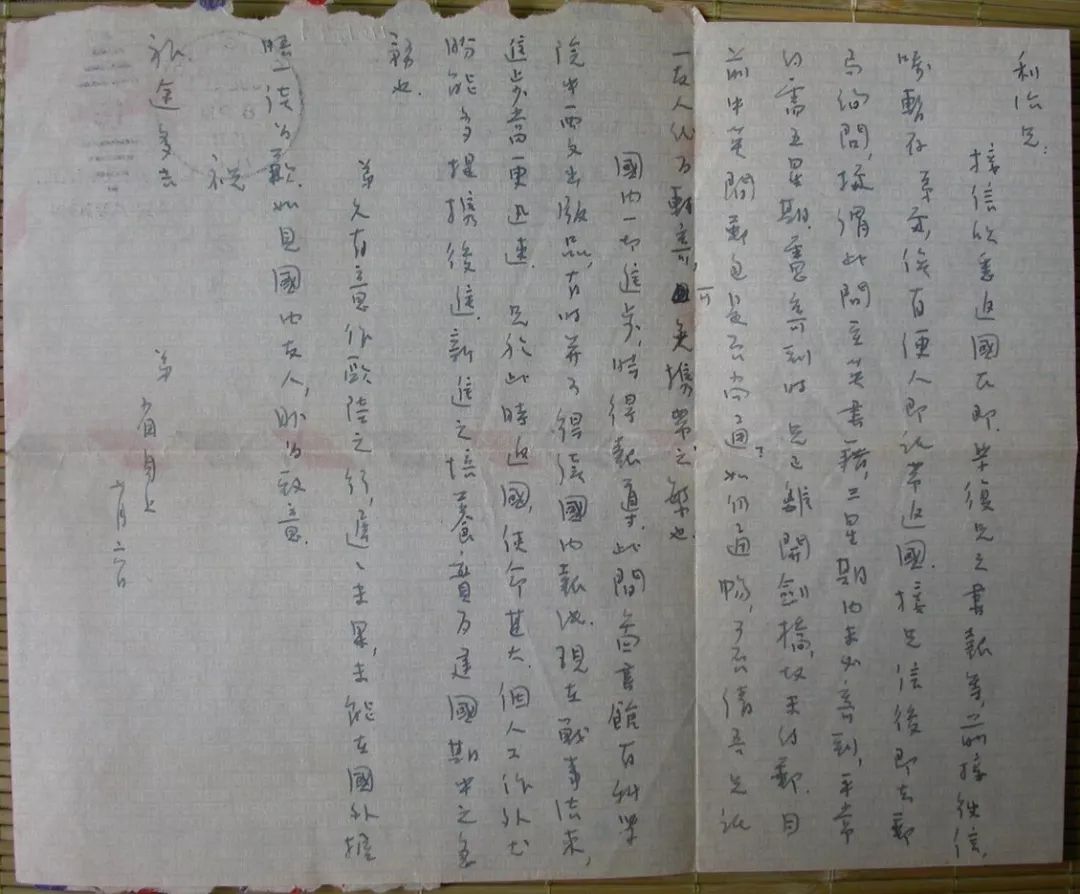 利治兄：
接信欣悉返國在即．柴俊兄之書報等，前接他信，
囑暫存　弟處，俟有便人即託帶返國．接兄信後即去郵
局詢問，據謂此間至英書籍，三星期內未必寄到，平常
約需五星期．竊意寄到時　兄已離開劍橋，故未付郵．目
前中英間郵包是否尚通？如仍通暢，可否請吾兄託
一友人代為轉寄，可免攜帶之繁也．
國內一切進步，時得報導．此間圖書館有科學
院中西文出版品，有時並可得讀國內報紙．現在戰事結束，
進步當更迅速．　兄於此時返國，使命甚大．個人工作外尤
盼能多提攜後進．新進之培養實為建國期中之急
務也．
弟久有意作歐陸之行，遲遲未果，未能在國外握
晤，誠為歉．如見國內友人，盼為致意．
祝
旅途多吉
弟　省身上
六月二日